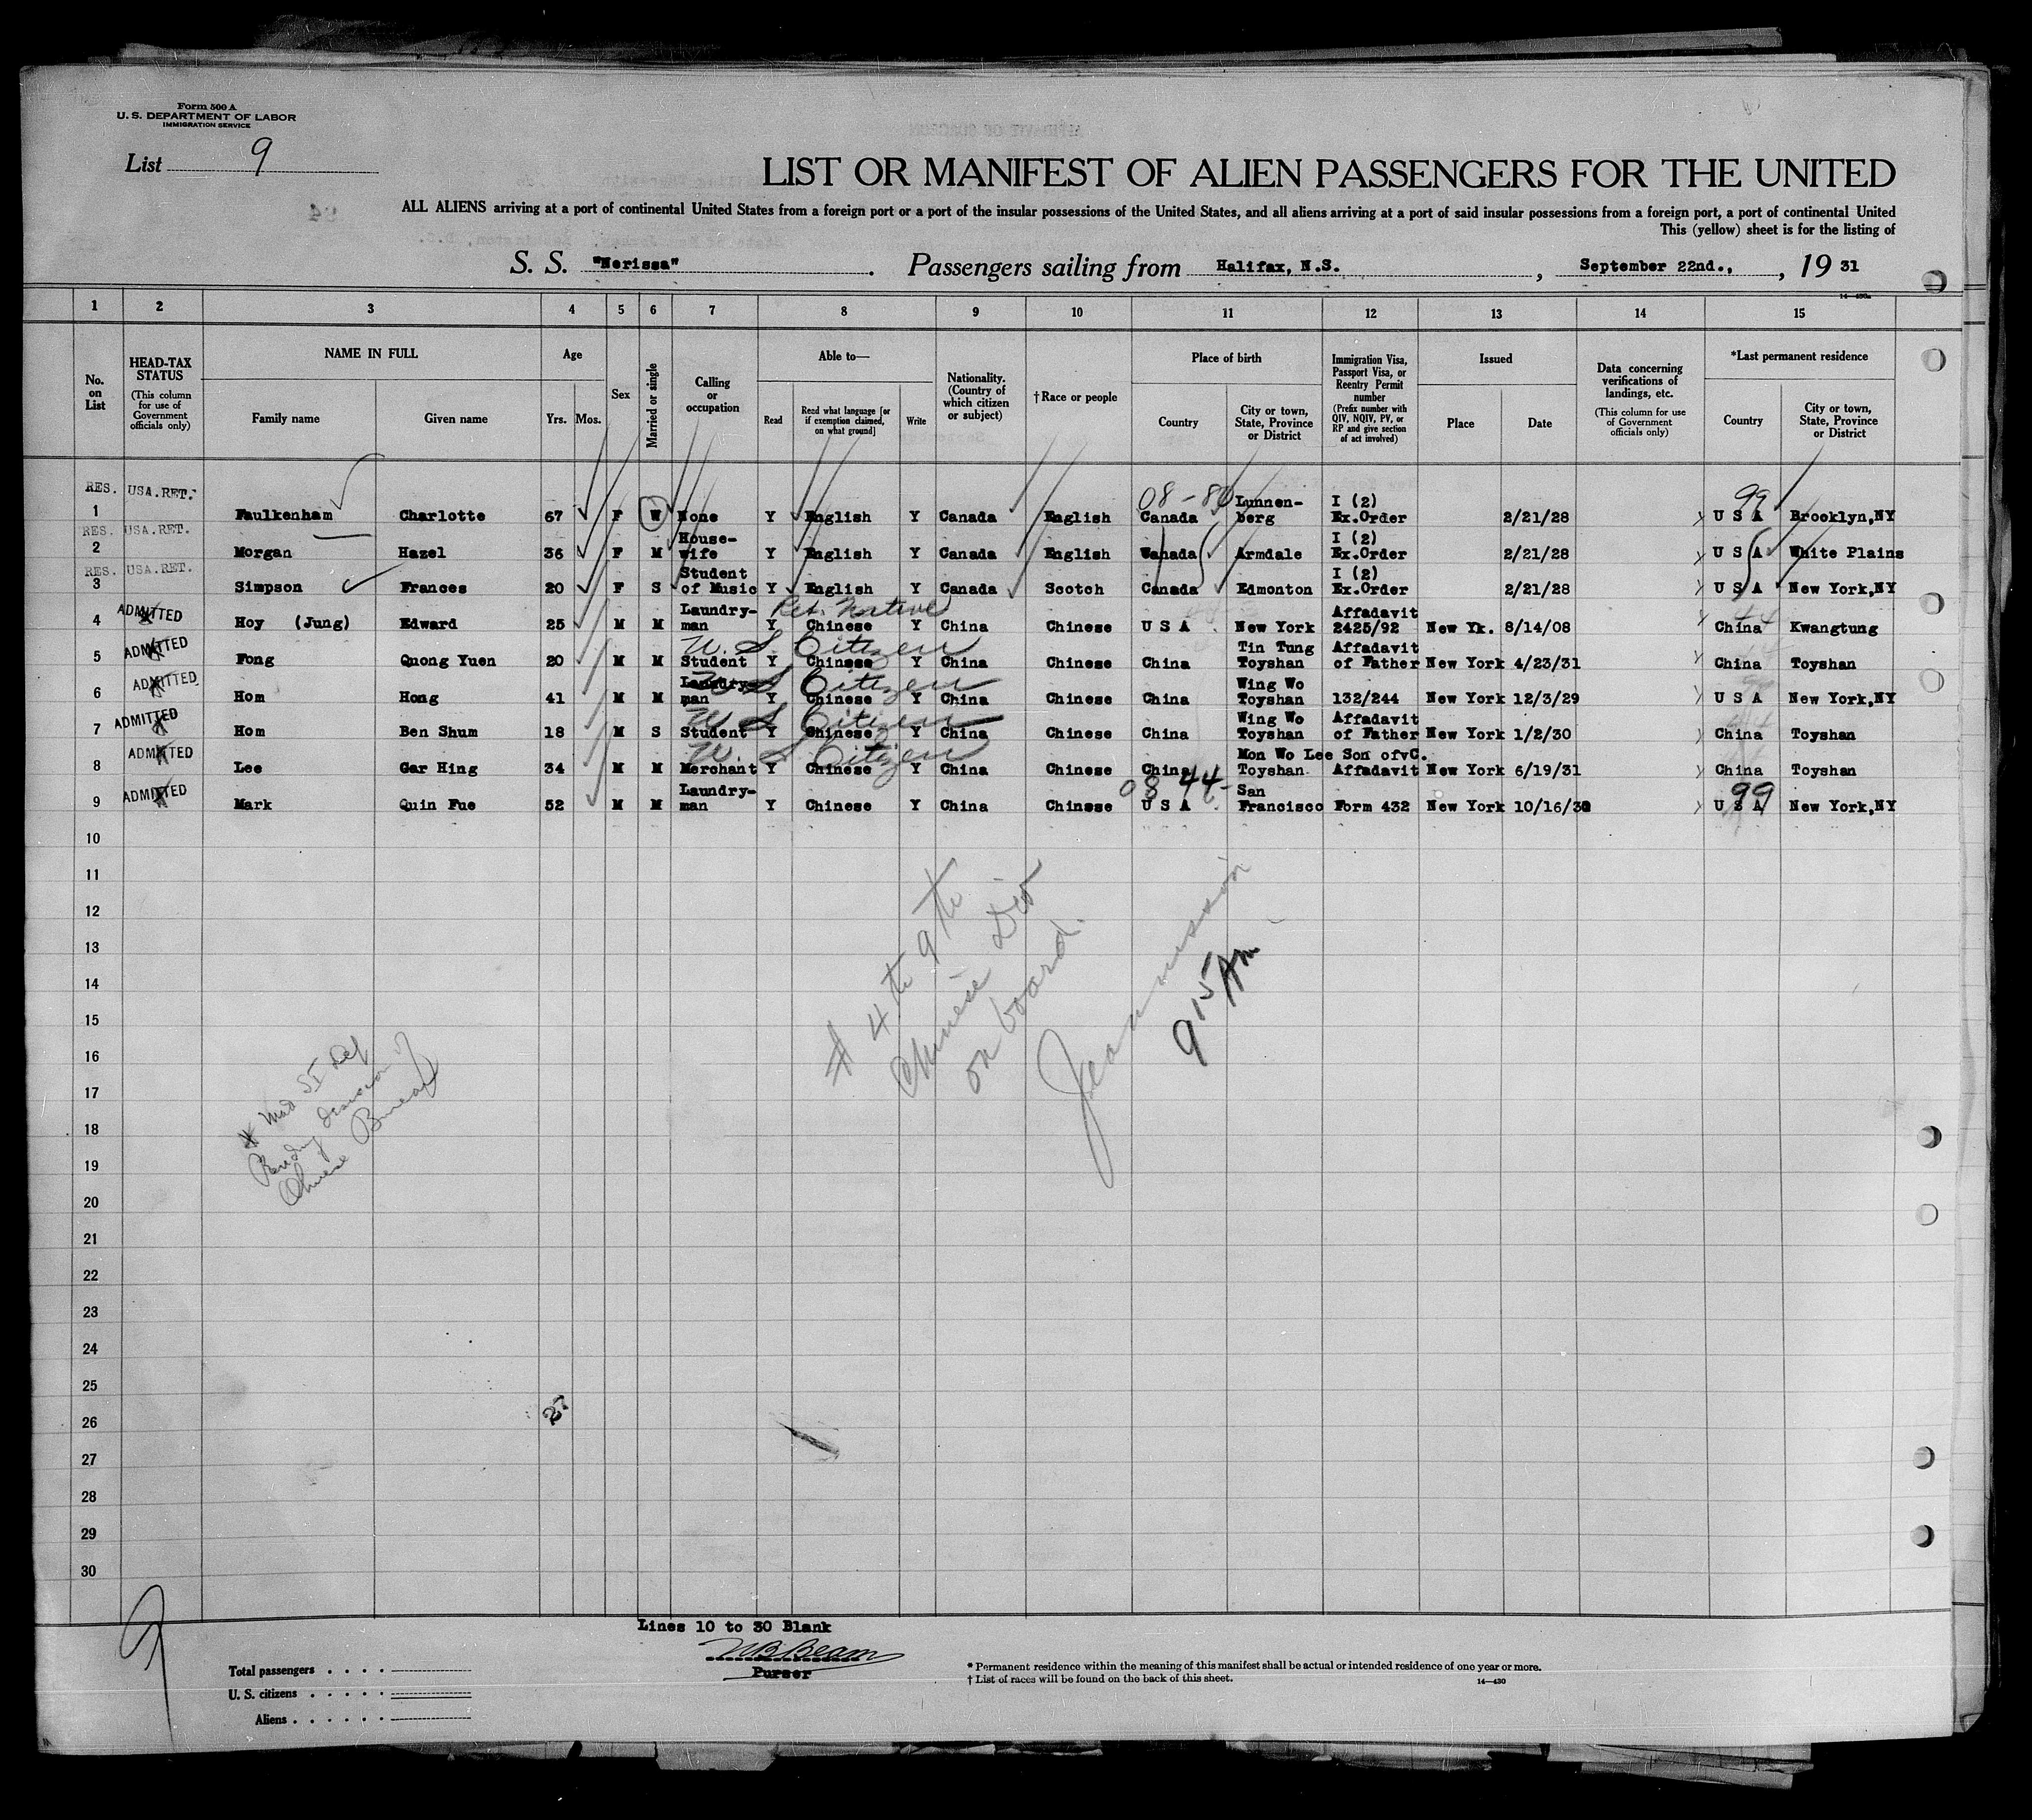 Form 500 A
U. S. DEPARTMENT OF LABOR
IMMIGRATION SERVICE
List 9
LIST OR MANIFEST OF ALIEN PASSENGERS FOR THE UNITED
ALL ALIENS arriving at a port of continental United States from a foreign port or a port of the insular possessions of the United States, and all aliens arriving at a port of said insular possessions from a foreign port, a port of continental United
This (yellow) sheet is for the listing of
S. S. "Nerissa". Passengers sailing from Halifax, N.S., September 22nd., , 19 31
14—430a
1 2 3 4 5 6 7 8 9 10 11 12 13 14 15
No. on List
HEAD-TAX STATUS (This column for use of Government officials only)
NAME IN FULL Family name Given name
Age Yrs. Mos.
Sex
Married or single
Calling or occupation
Able to— Read Read what language [or if exemption claimed, on what ground] Write
Nationality. (Country of which citizen or subject)
†Race or people
Place of birth Country City or town, State, Province or District
Immigration Visa, Passport Visa, or Reentry Permit number (Prefix number with QIV, NQIV, PV, or RP and give section of act involved)
Issued Place Date
Data concerning verifications of landings, etc. (This column for use of Government officials only)
*Last permanent residence Country City or town, State, Province or District
RES. USA.RET. 08-86 Lunnen- I (2) 99
1 Faulkenham Charlotte 67 F W None Y English Y Canada English Canada berg Ex.Order 2/21/28 U S A Brooklyn,NY
RES. USA.RET. House- I (2)
2 Morgan Hazel 36 F M wife Y English Y Canada English Canada Armdale Ex.Order 2/21/28 U S A White Plains
RES. USA.RET. Student I (2)
3 Simpson Frances 20 F S of Music Y English Y Canada Scotch Canada Edmonton Ex.Order 2/21/28 U S A New York,NY
ADMITTED Laundry- Ret. Native Affadavit 44
4 Hoy (Jung) Edward 25 M M man Y Chinese Y China Chinese U S A New York 2425/92 New Yk. 8/14/08 China Kwangtung
ADMITTED U. S. Citizen Tin Tung Affadavit
5 Fong Quong Yuen 20 M M Student Y Chinese Y China Chinese China Toyshan of Father New York 4/23/31 China Toyshan
ADMITTED Laundry- U S Citizen Wing Wo
6 Hom Hong 41 M M man Y Chinese Y China Chinese China Toyshan 132/244 New York 12/3/29 U S A New York,NY
ADMITTED U S Citizen Wing Wo Affadavit
7 Hom Ben Shum 18 M S Student Y Chinese Y China Chinese China Toyshan of Father New York 1/2/30 China Toyshan
ADMITTED U. S. Citizen Mon Wo Lee Son ofvC.
8 Lee Gar Hing 34 M M Merchant Y Chinese Y China Chinese China Toyshan Affadavit New York 6/19/31 China Toyshan
ADMITTED Laundry- 08 44- San 99
9 Mark Quin Fue 52 M M man Y Chinese Y China Chinese U S A Francisco Form 432 New York 10/16/30 U S A New York,NY
10
11
12
13
14
15
16
17
18
19
20
21
22
23
24
25
26
27
28
29
30
# 4th 9th
Chinese Div
on board.
915 Am
Pending decision of
Chinese Bureau
27
9
Lines 10 to 30 Blank
Purser
Total passengers . . . .
U. S. citizens . . . . .
Aliens . . . . . .
* Permanent residence within the meaning of this manifest shall be actual or intended residence of one year or more.
† List of races will be found on the back of this sheet.
14—430